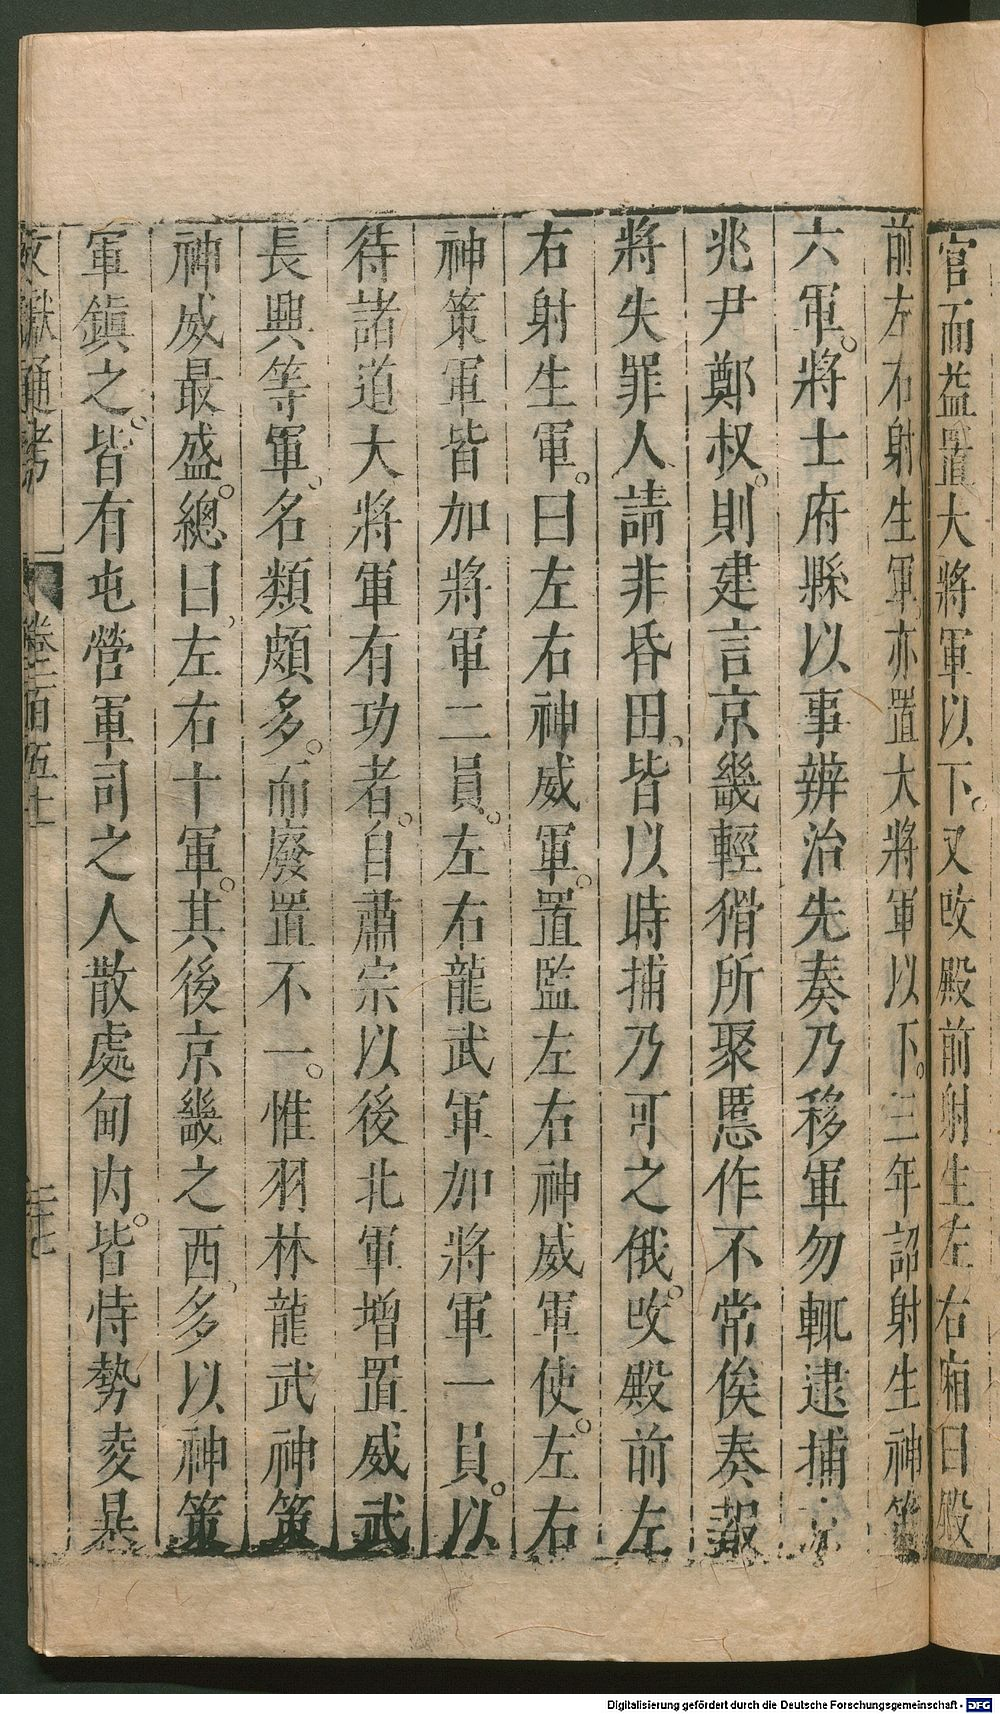 官而益置大將軍以下又改殿前射生左右廂曰殿
前左右射生軍亦置大將軍以下三年詔射生神策
六軍將士府縣以事辦治先奏乃移軍勿輒逮捕京
兆尹鄭叔則建言京畿輕猾所聚慝作不常俟奏報
將失罪人請非昏田皆以時捕乃可之俄改殿前左
右射生軍曰左右神威軍置監左右神威軍使左右
神策軍皆加將軍二員左右龍武軍加將軍一員以
待諸道大將軍有功者自肅宗以後北軍增置威武
長興等軍名類頗多而廢置不一惟羽林龍武神策
神威最盛總曰左右十軍其後京畿之西多以神策
軍鎮之皆有屯營軍司之人散處甸內皆恃勢凌暴
文獻通考 卷一百五十一 三十七
Digitalisierung gefördert durch die Deutsche Forschungsgemeinschaft - DFG